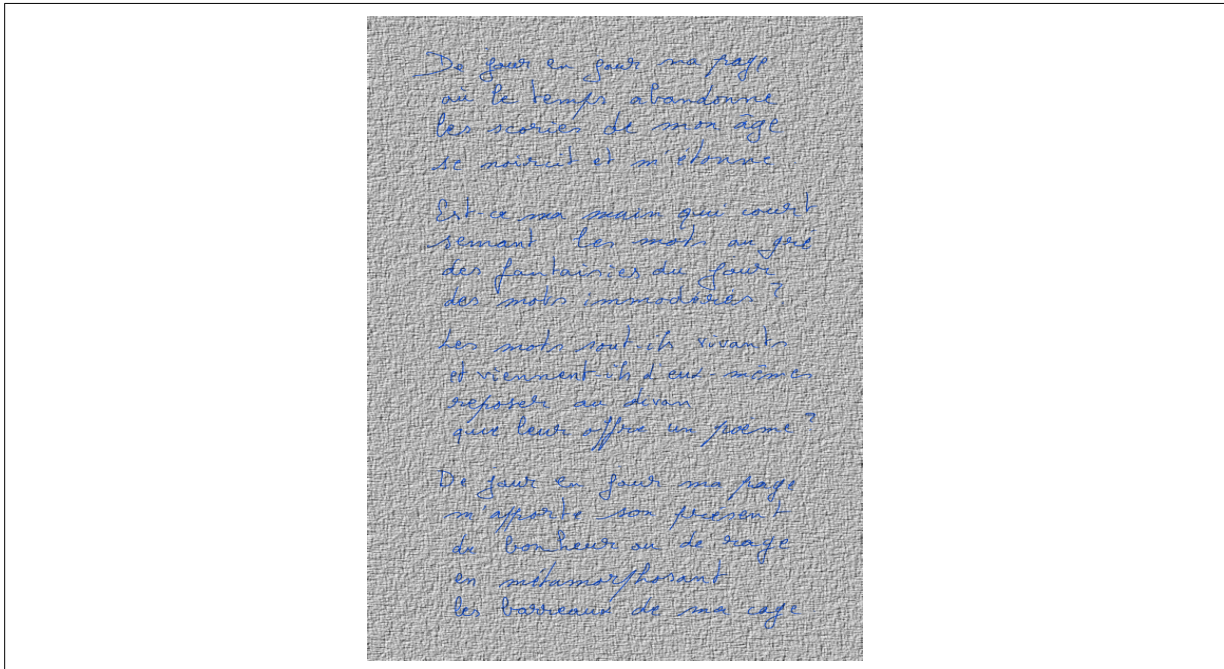 De jour en jour ma page
où le temps abandonne
les scories de mon âge
se noircit et m'étonne
Est-ce ma main qui court
semant les mots au gré
des fantaisies du jour
des mots immodérés ?
Les mots sont ils vivants
et viennent ils d'eux-mêmes
reposer au divan
que leur offre un poème ?
De jour en jour ma page
m'apporte son présent
du bonheur ou de rage
en métamorphosant
les barreaux de ma cage